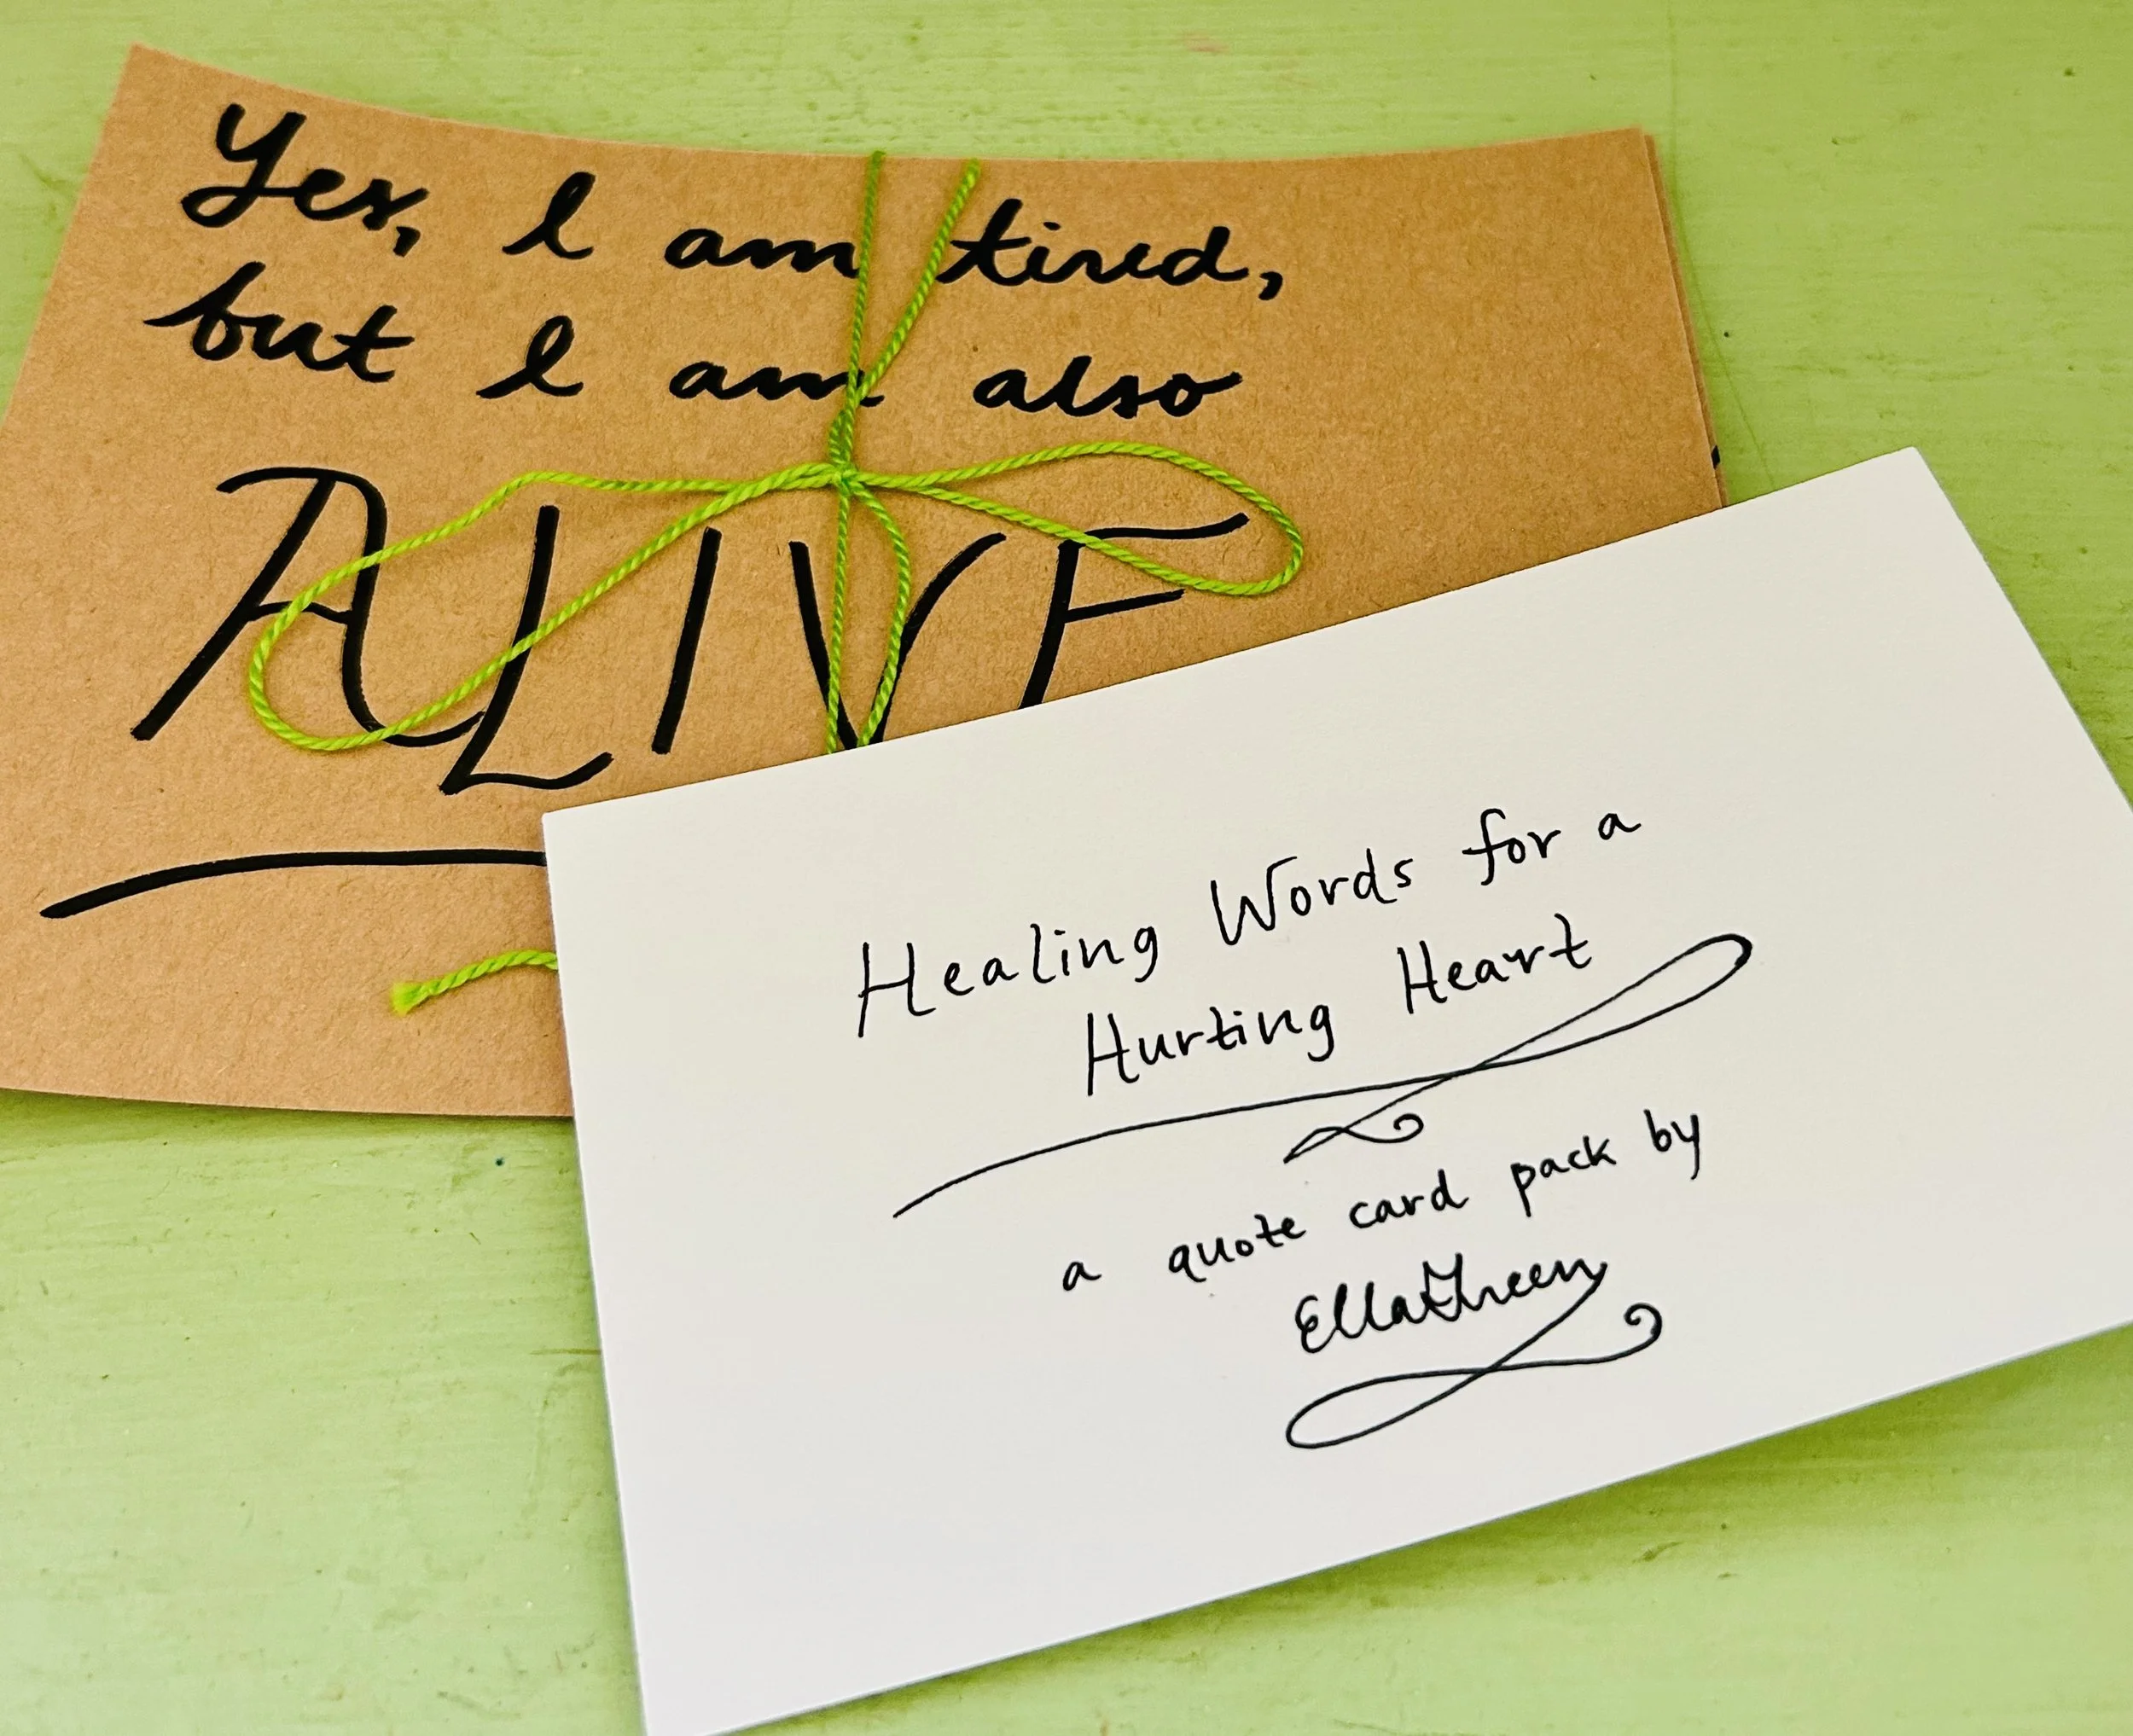 Yes, I am tired,
but I am also
ALIVE
Healing Words for a
Hurting Heart
a quote card pack by
EllaThreen